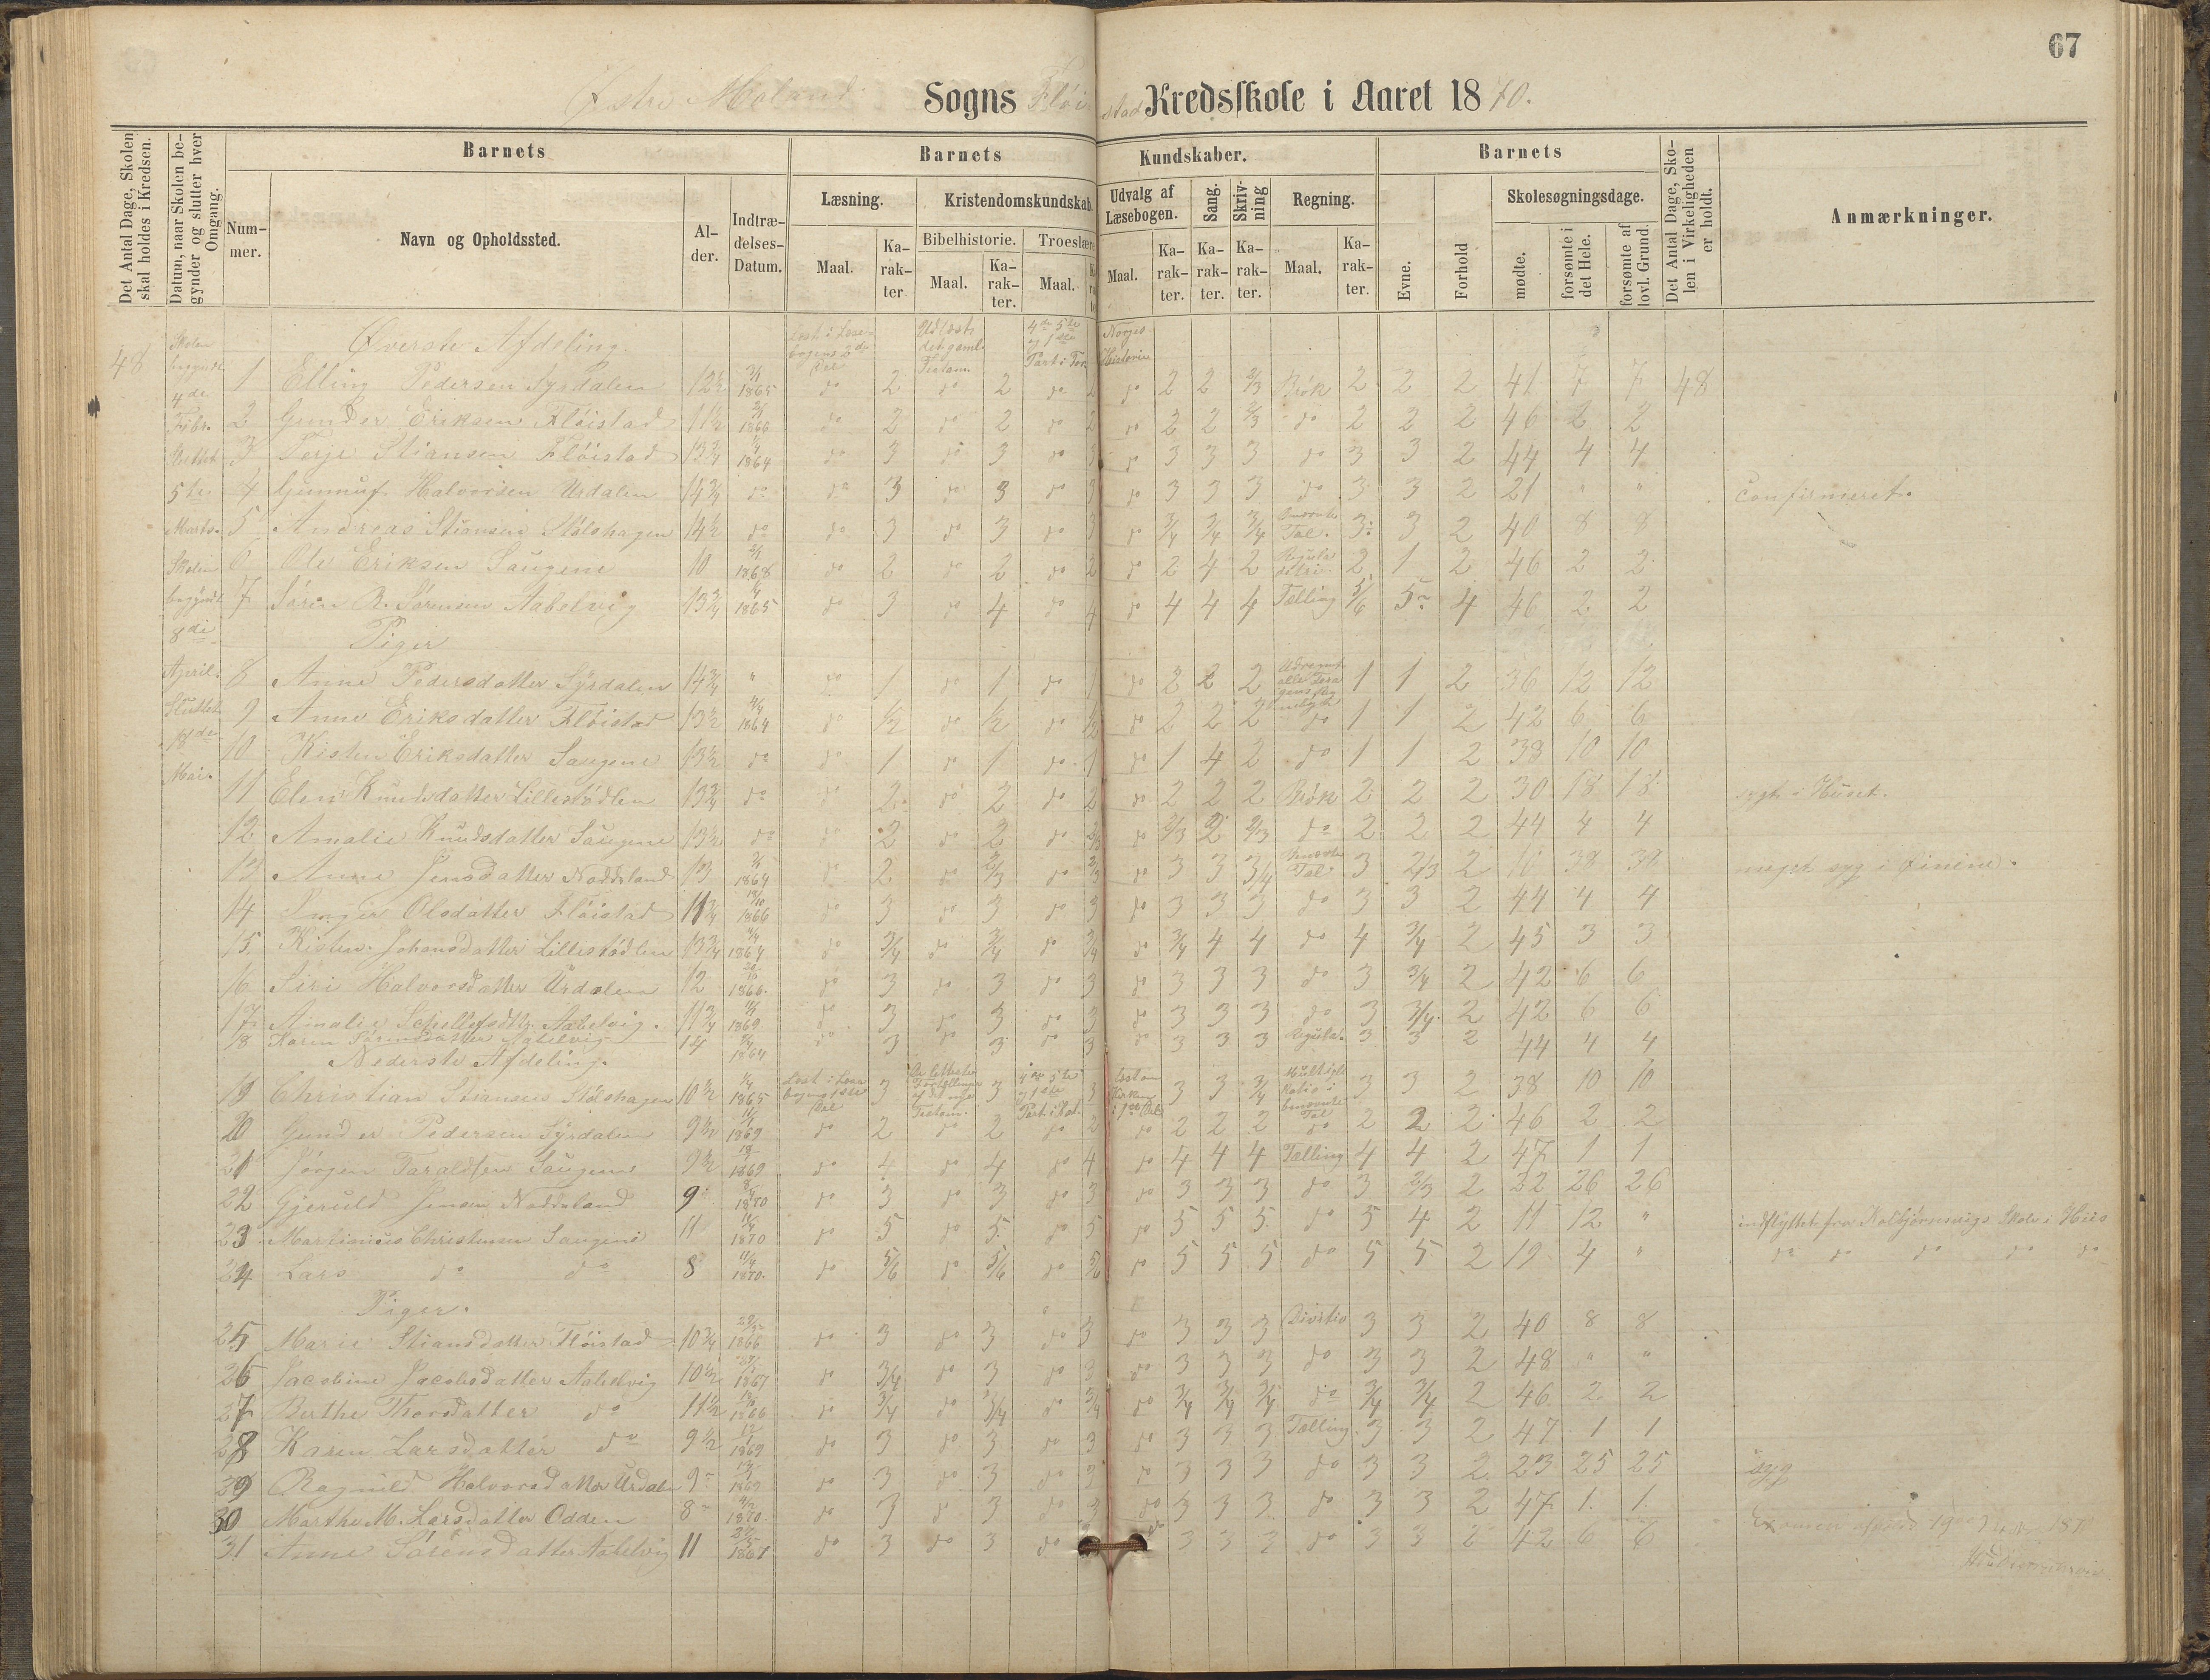 67
Østre Moland Sogns Fløistad Kredsskole i Aaret 1870.
Det Antal Dage, Skolen skal holdes i Kredsen.
Datum, naar Skolen begynder og slutter hver Omgang.
Barnets
Nummer.
Navn og Opholdssted.
Alder.
Indtrædelses-Datum.
Barnets Kundskaber.
Læsning.
Maal.
Karakter
Kristendomskundskab.
Bibelhistorie.
Maal.
Karakter.
Troeslære
Maal.
Udvalg af Læsebogen.
Maal.
Karakter.
Sang.
Karakter.
Skrivning
Karakter.
Regning.
Maal.
Karakter.
Barnets
Evne.
Forhold
Skolesøgningsdage.
mødte.
forsømte i det Hele.
forsømte af lovl. Grund.
Det Antal Dage, Skolen i Virkeligheden er holdt.
Anmærkninger.
48
Skolen
begyndt
4de
Febr.
Sluttet
5te
Marts.
Skolen
begyndt
8di
April.
Sluttet
18de
Mai.
Øverste Afdeling.
Norges Historie
1 Elling Pedersen Syrdalen 12½ 1865 do 2 do 2 do 2 do 2 2 2/3 Brøk 2 2 2 41 7 7 48
2 Gunder Eriksen Fløistad 11½ 1866 do 2 do 2 do 2 do 2 2 2/3 do 2 2 2 46 2 2
3 Terje Stiansen Fløistad 13¾ 1864 do 3 do 3 do 3 do 3 3 3 do 3 3 2 44 4 4
4 Gunnuf Halvorsen Urdalen 14¾ do do 3 do 3 do 3 do 3 3 3 do 3 3 2 21 " " Confirmeret.
5 Andreas Stiansen Stølshagen 14½ do do 3 do 3 do 3 do 3/4 3/4 3/4 Benævnte Tal. 3 3 2 40 8 8
6 Ole Eriksen Saugene 10 1868 do 2 do 2 do 2 do 2 4 2 Regula detri 2 1 2 46 2 2
7 Søren R. Sørensen Aabelvig 13¾ 1865 do 3 do 4 do 4 do 4 4 4 Tælling 5/6 5 4 46 2 2
Piger
8 Anne Pedersdatter Syrdalen 14¾ " do 1 do 1 do 1 do 2 2 2 1 1 2 36 12 12
9 Anne Eriksdatter Fløistad 13½ 1864 do ½ do ½ do ½ do 2 2 2 do 1 1 2 42 6 6
10 Kisten Eriksdatter Saugene 13½ do do 1 do 1 do 1 do 1 4 2 do 1 1 2 38 10 10
11 Elen Knudsdatter Lillestødlen 13¾ do do 2 do 2 do 2 do 2 2 2 Brøk 2 2 2 30 18 18 sygt i Huset.
12 Amalie Knudsdatter Saugene 13½ do do 2 do 2 do do 2/3 2 2/3 do 2 2 2 44 4 4
13 Anne Jensdatter Noddeland 13 1864 do 2 do 2/3 do 2/3 do 3 3 3/4 Benævnte Tal 3 2/3 2 10 38 38 meget syg i
14 Inger Olsdatter Fløistad 11¾ 1866 do 3 do 3 do 3 do 3 3 3 do 3 3 2 44 4 4
15 Kisten Johansdatter Lillestødlen 13¾ 1864 do 3/4 do 3/4 do 3/4 do 3/4 4 4 do 4 3/4 2 45 3 3
16 Siri Halvorsdatter Urdalen 12 1866. do 3 do 3 do 3 do 3 3 3 do 3 3/4 2 42 6 6
17 Amalie Aabelvig. 11¾ 1869 do 3 do 3 do 3 do 3 3 3 do 3 3/4 2 42 6 6
18 Karen Sørensdatter Aabelvig 14 1864 do 3 do 3 do 3 do 3 3 3 Regula. 3 3 2 44 4 4
Nederste Afdeling.
19 Christian Stiansen Stølshagen 10½ 1865 3 3 3 3 3 3/4 3 3 2 38 10 10
20 Gunder Pedersen Syrdalen 9½ 1869 do 2 do 2 do 2 do 2 2 2 do 2 2 2 46 2 2
21 Jørgen Taraldsen Saugene 9½ 1869 do 4 do 4 do 4 do 4 4 4 Tælling 4 4 2 47 1 1
22 Gjeruld Jensen Noddeland 9 1870 do 3 do 3 do 3 do 3 3 3 do 3 2/3 2 22 26 26
23 Martinius Christensen Saugene 11 1870 do 5 do 5 do 5 do 5 5 5 do 5 4 2 11 12 " indflyttet fra Kolbjørnsvigs Skole i Hiis
24 Lars do do 8 1870. do 5/6 do 5/6 do 5/6 do 5 5 5 do 5 5 2 19 4 " do do do do do
Piger.
25 Marie Stiansdatter Fløistad 10¾ 1866 do 3 do 3 do 3 do 3 3 3 Divitio 3 3 2 40 8 8
26 Jacobine Jacobsdatter Aabelvig 10½ 1867 do 3/4 do 3 do 3 do 3 3 3 do 3 3 2 48 " "
27 Berthe Thorsdatter do 11½ 1866 do 3/4 do 3/4 do 3/4 do 3/4 3/4 3/4 do 3/4 3/4 2 46 2 2
28 Karen Larsdatter do 9½ 1869 do 3 do 3 do 3 do 3 3 3 Tælling 3 3 2 47 1 1
29 Ragnild Halvorsdatter Urdalen 9 1869 do 3 do 3 do 3 do 3 3 3 do 3 3 2 23 25 25 syg
30 Marthe M. Larsdatter Odden 8 1870. do 3 do 3 do 3 do 3 3 3 do 3 3 2 47 1 1
31 Anne Sørensdatter Aabelvig 11 1867 do 3 do 3 do do 3 3 3 do 3 3 2 42 6 6